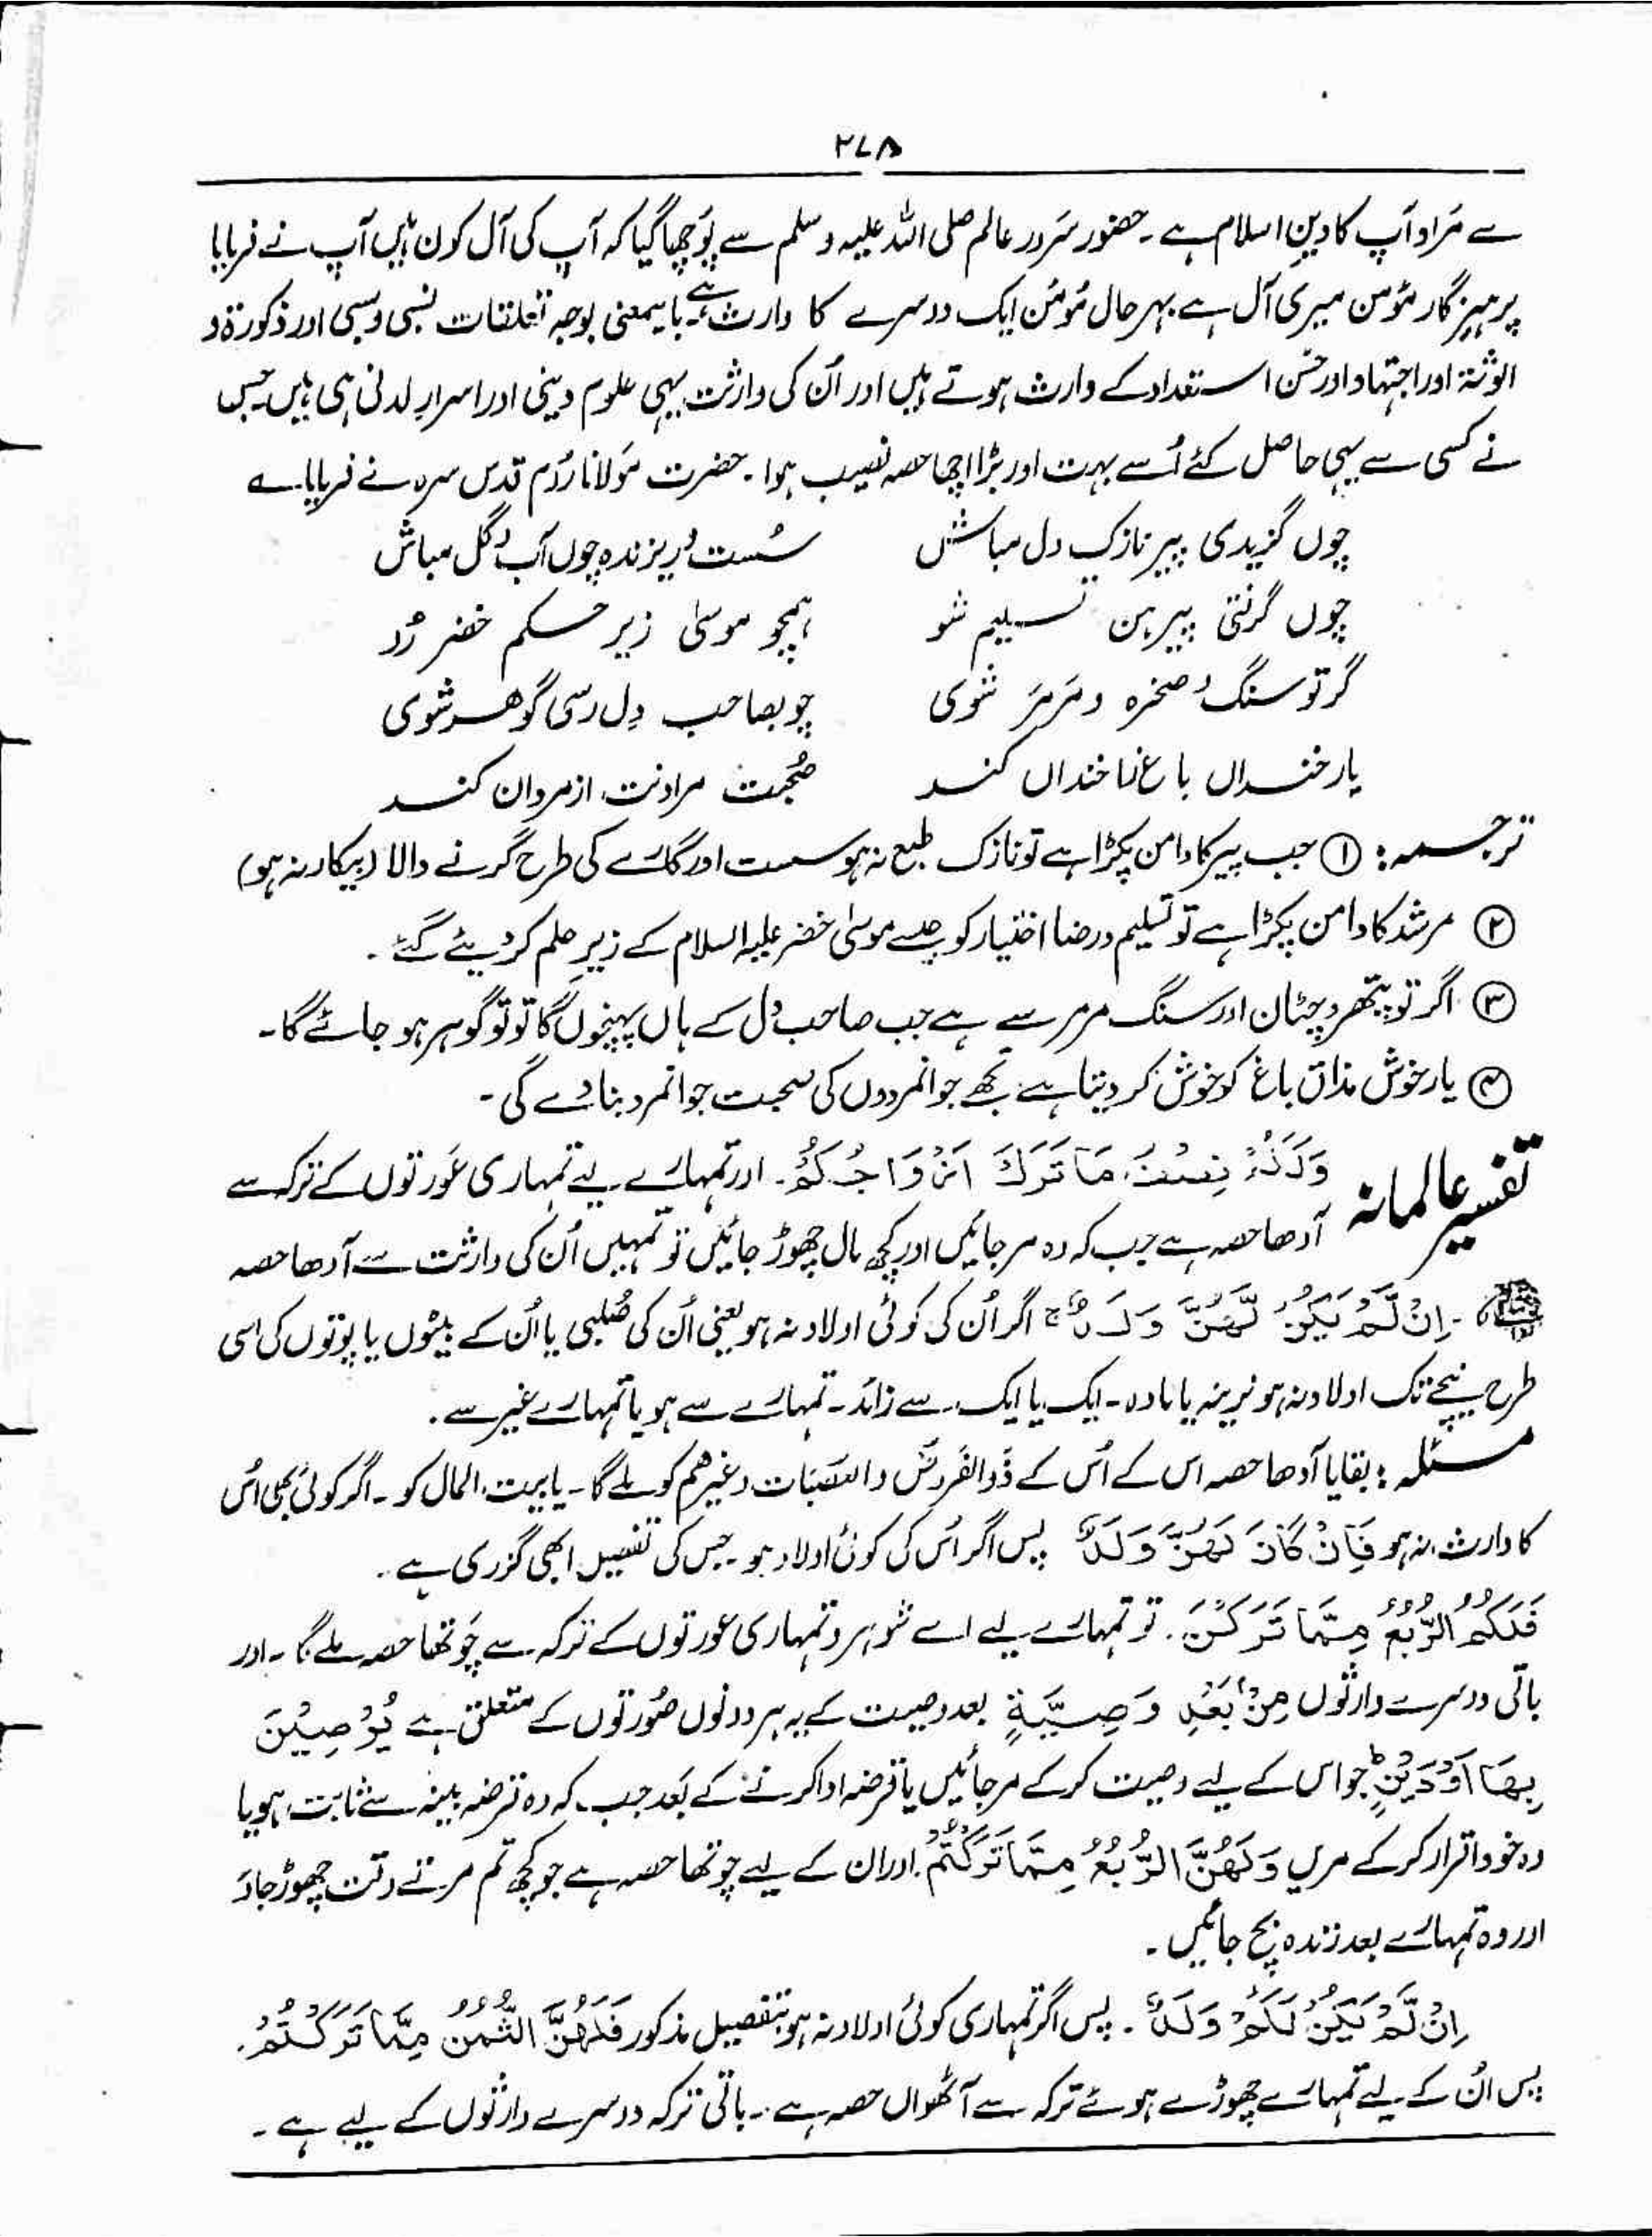 ۲۷۸
سے مَراد آپ کا دینِ اسلام ہے ۔ حضور سَرور عالم صلی اللہ علیہ وسلم سے پُوچھا گیا کہ آپ کی آل کون ہیں آپ نے فرمایا
پرہیزگار مؤمن میری آل ہے بہرحال مؤمن ایک دوسرے کا وارث ہے۔ بایمعنی بوجہ تعلقات نسبی و سببی اور ذکورۃ و
الوثنۃ اور اجتہاد اور حُسن استعداد کے وارث ہوتے ہیں اور اُن کی وارثت یہی علوم دینی اور اسرارِ لدنی ہی ہیں جس
نے کسی سے یہی حاصل کئے اُسے بہت اور بڑا اچھا حصہ نصیب ہوا ۔ حضرت مَولانا رُوم قدس سرہ نے فرمایا ؎
چوں گزیدی پیر نازک دل مباش سُست و ریزندہ چوں آب و گل مباش
چوں گرفتی پیر ہن تسلیم شو ہمچو موسیٰ زیر حکم خضر رَو
گر تو سنگ و صخرہ و مَرمَر شوی چو بصاحب دِل رسی گوھر شوی
یار خنداں باغ را خنداں کند صُحبت مردانت از مردان کند
ترجمہ : ① جب پیر کا دامن پکڑا ہے تو نازک طبع نہ ہو سست اور گارے کی طرح گرنے والا (بیکار نہ ہو)
② مرشد کا دامن پکڑا ہے تو تسلیم و رضا اختیار کو جیسے موسیٰ خضر علیہ السلام کے زیرِ حلم کر دیئے گئے ۔
③ اگر تو پتھر و چٹان اور سنگ مرمر سے ہے جب صاحب دل کے ہاں پہنچوں گا تو تو گوہر ہو جائے گا ۔
④ یار خوش مذاق باغ کو خوش کر دیتا ہے تجھے جوانمردوں کی صحبت جوانمرد بنا دے گی ۔
تفسیر عالمانہ وَلَكُمْ نِصْفُ مَا تَرَكَ اَزْوَاجُكُمْ ۔ اور تمہارے لیے تمہاری عَورتوں کے ترکہ سے
آدھا حصہ ہے جب کہ وہ مر جائیں اور کچھ مال چھوڑ جائیں تو تمہیں اُن کی وارثت سے آدھا حصہ
۔ اِنْ لَّمْ يَكُنْ لَّهُنَّ وَلَدٌ ج اگر اُن کی کوئی اولاد نہ ہو یعنی اُن کی صُلبی یا اُن کے بیٹوں یا پوتوں کی اسی
طرح نیچے تک اولاد نہ ہو نرینہ یا مادہ ۔ ایک یا ایک سے زائد ۔ تمہارے سے ہو یا تمہارے غیر سے ۔
مسئلہ : بقایا آدھا حصہ اس کے اُس کے ذَوالفروض والعَصَبات وغیرھم کو ملے گا ۔ یا بیت المال کو ۔ اگر کوئی بھی اُس
کا وارث نہ ہو فَاِنْ كَانَ لَهُنَّ وَلَدٌ پس اگر اُس کی کوئی اولاد ہو ۔ جس کی تفصیل ابھی گزری ہے ۔
فَلَكُمُ الرُّبُعُ مِمَّا تَرَكْنَ ۔ تو تمہارے لیے اے شوہرو تمہاری عورتوں کے ترکہ سے چَوتھا حصہ ملے گا ۔ اور
باقی دوسرے وارثوں مِنْۢ بَعْدِ وَصِيَّةٍ بعد وصیت کے یہ ہر دونوں صُورتوں کے متعلق ہے يُّوْصِيْنَ
بِهَا اَوْ دَيْنٍ ط جو اس کے لیے وصیت کر کے مر جائیں یا قرضہ ادا کرنے کے بَعد جب کہ وہ قرضہ بینہ سے ثابت ہو یا
وہ خود اقرار کر کے مریں وَلَهُنَّ الرُّبُعُ مِمَّا تَرَكْتُمْ ۔ اور ان کے لیے چوتھا حصہ ہے جو کچھ تم مرتے وقت چھوڑ جاؤ
اور وہ تمہارے بعد زندہ بچ جائیں ۔
اِنْ لَّمْ يَكُنْ لَّكُمْ وَلَدٌ ۔ پس اگر تمہاری کوئی اولاد نہ ہو بتفصیل مذکور فَلَهُنَّ الثُّمُنُ مِمَّا تَرَكْتُمْ ۔
پس اُن کے لیے تمہارے چھوڑے ہوئے ترکہ سے آٹھواں حصہ ہے ۔ باقی ترکہ دوسرے وارثوں کے لیے ہے ۔